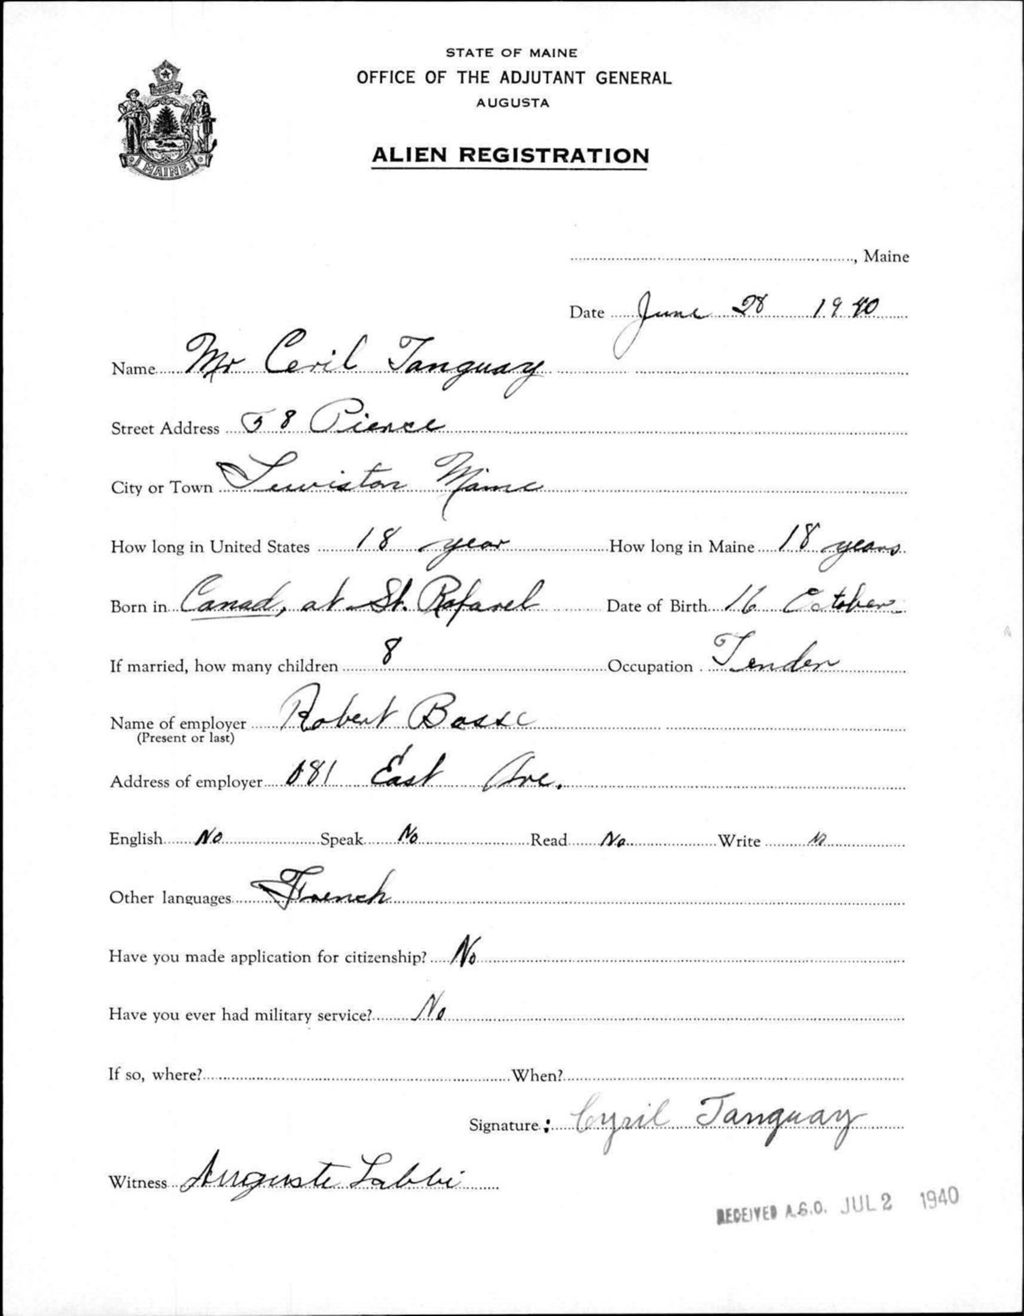 STATE OF MAINE
OFFICE OF THE ADJUTANT GENERAL
AUGUSTA
ALIEN REGISTRATION
MAINE
, Maine
Date June 28 1940
Name Mr Ceril Tanguay
Street Address 58 Pierce
City or Town Lewiston Maine
How long in United States 18 year How long in Maine 18 years
Born in Canad, at St. Rafael Date of Birth 16 October
If married, how many children 8 Occupation Tender
Name of employer Robert Basse
(Present or last)
Address of employer 681 East Ave.
English No Speak No Read No Write No
Other languages French
Have you made application for citizenship? No
Have you ever had military service? No
If so, where? When?
Signature: Cyril Tanguay
Witness Auguste Labbi
RECEIVED A.G.O. JUL 2 1940